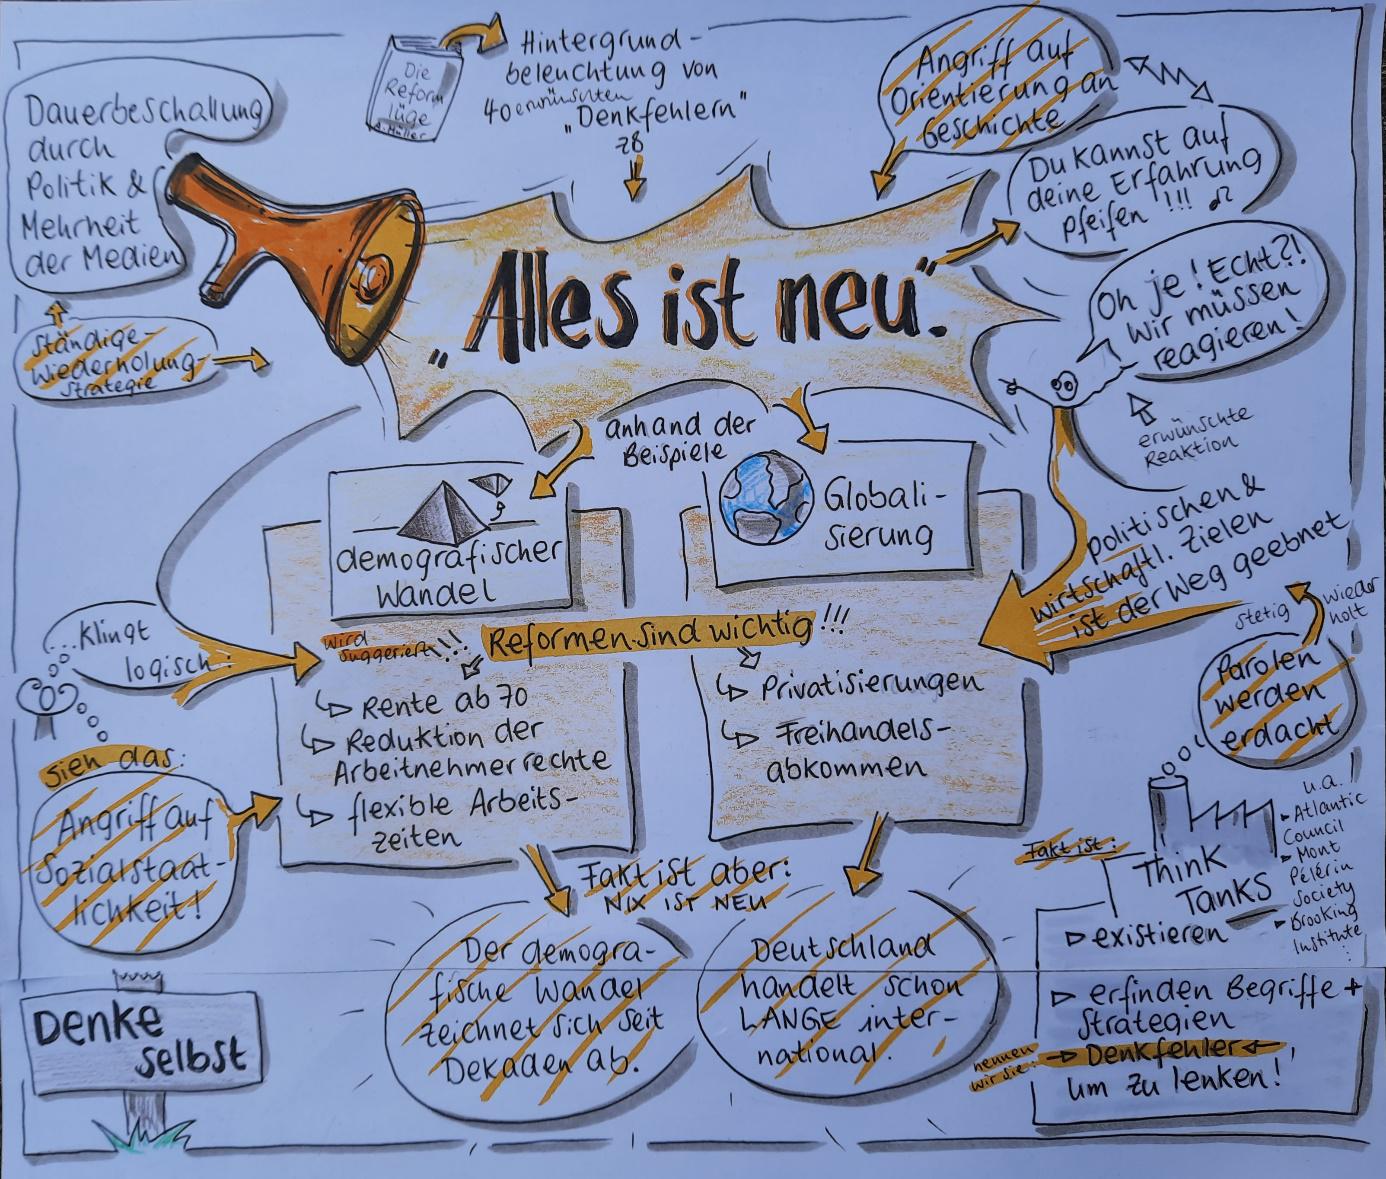 Die
Reform
lüge
A. Müller
Hintergrund-
beleuchtung von
40 erwünschten
"Denkfehlern"
zB
Angriff auf
Orientierung an
Geschichte
Dauerbeschallung
durch
Politik &
Mehrheit
der Medien
Du kannst auf
deine Erfahrung
pfeifen !!!
"Alles ist neu".
Oh je! Echt?!
Wir müssen
reagieren!
erwünschte
Reaktion
ständige
Wiederholung-
Strategie
anhand der
Beispiele
demografischer
Wandel
Globali-
sierung
politischen &
wirtschaftl. Zielen
ist der Weg geebnet
...klingt
logisch.
wird
suggeriert !!!
Reformen sind wichtig !!!
Rente ab 70
Reduktion der
Arbeitnehmerrechte
flexible Arbeits-
zeiten
Privatisierungen
Freihandels-
abkommen
stetig
wieder
holt
Parolen
werden
erdacht
sien das:
Angriff auf
Sozialstaat-
lichkeit!
Fakt ist aber:
NIX IST NEU
Der demogra-
fische Wandel
zeichnet sich seit
Dekaden ab.
Deutschland
handelt schon
LANGE inter-
national.
Fakt ist:
Think
Tanks
u.a.
Atlantic
Council
Mont
Pélérin
Society
Brooking
Institute
existieren
erfinden Begriffe +
Strategien
nennen
wir sie:
Denkfehler
um zu lenken!
DENKE
selbst